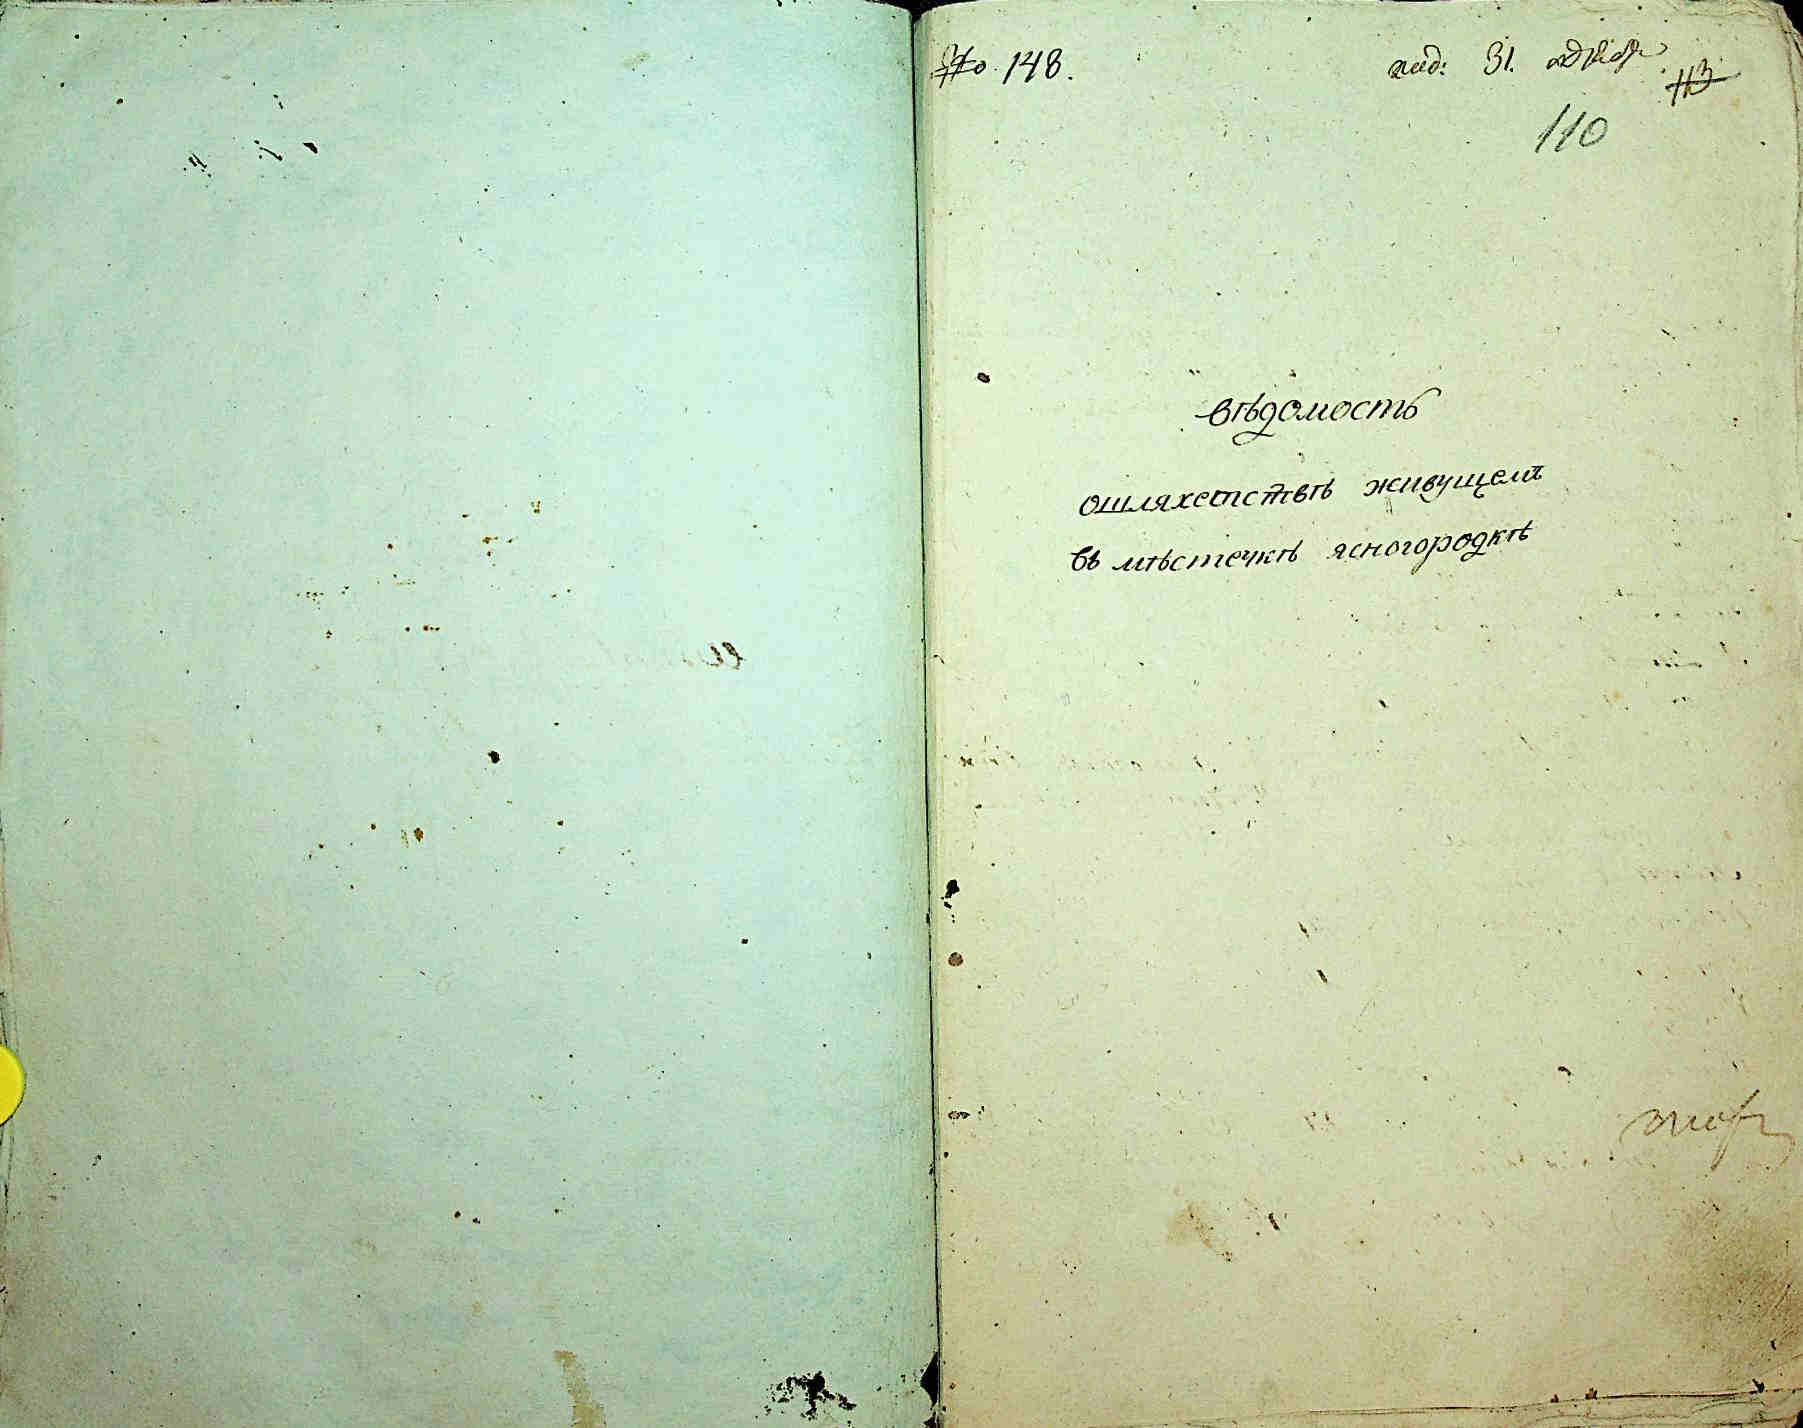 № 148.
под: 31. октября
113
110
вѣдомость
ошляхетствѣ живущемъ
въ мѣстечкѣ ясногородкѣ